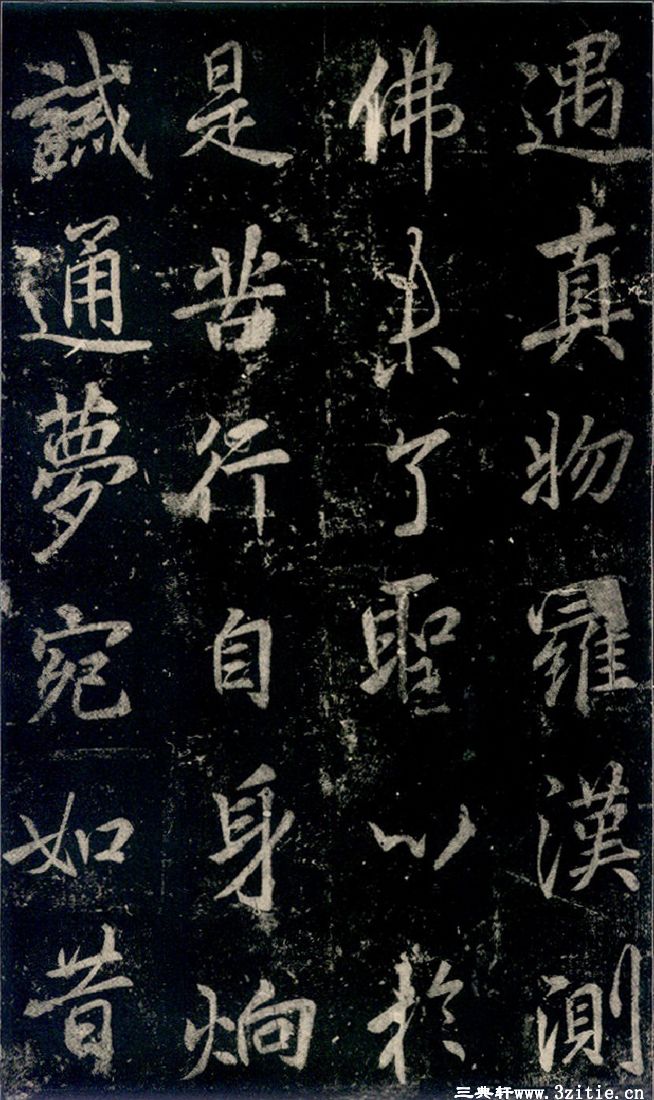 遇真物羅漢測
佛來了聖以於
是苦行自身炯
諴通夢宛如昔
三典轩www.3zitie.cn